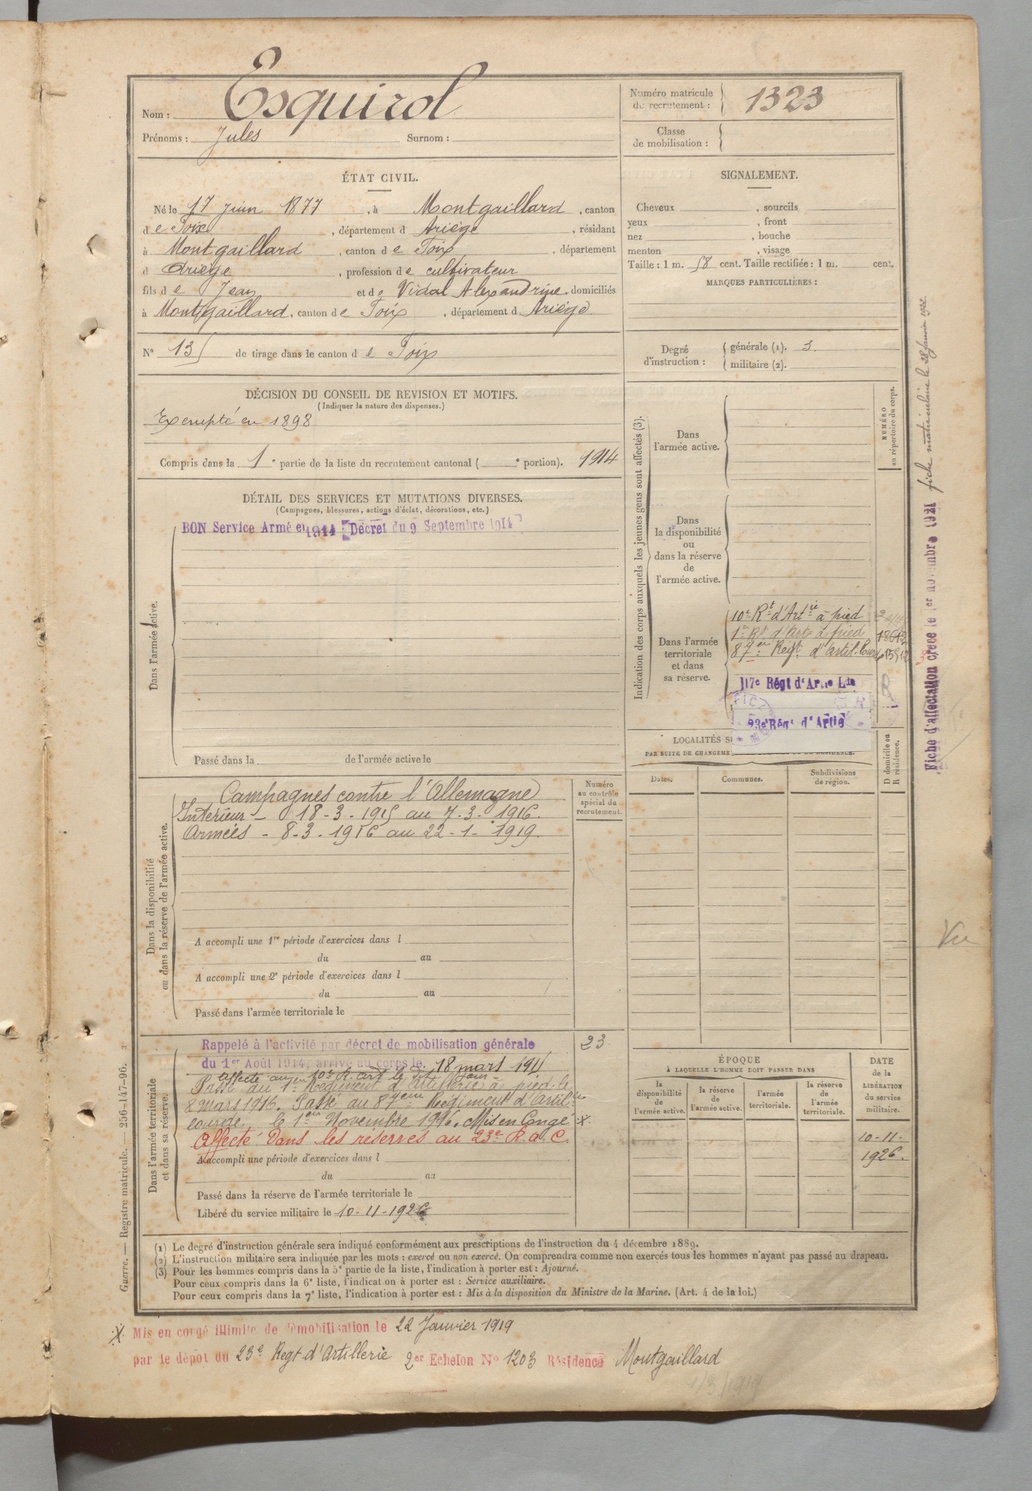 Nom : Esquirol
Prénoms : Jules Surnom :
Numéro matricule de recrutement : 1323
Classe de mobilisation :
ÉTAT CIVIL.
Né le 17 Juin 1877, à Montgaillard, canton
d e Foix, département d Ariège, résidant
à Montgaillard, canton d e Foix, département
d Ariège, profession d e cultivateur
fils d e Jean et d e Vidal Alexandrine, domiciliés
à Montgaillard, canton d e Foix, département d Ariège.
N° 135 de tirage dans le canton d e Foix
SIGNALEMENT.
Cheveux , sourcils
yeux , front
nez , bouche
menton , visage
Taille : 1 m. 58 cent. Taille rectifiée : 1 m. cent.
MARQUES PARTICULIÈRES :
Degré d'instruction : générale (1). 3.
militaire (2).
DÉCISION DU CONSEIL DE REVISION ET MOTIFS.
(Indiquer la nature des dispenses.)
Exempté en 1898
Compris dans la 1e partie de la liste du recrutement cantonal ( e portion). 1914
DÉTAIL DES SERVICES ET MUTATIONS DIVERSES.
(Campagnes, blessures, actions d'éclat, décorations, etc.)
BON Service Armé en 1914 Décret du 9 Septembre 1914
Dans l'armée active.
Passé dans la de l'armée active le
Indication des corps auxquels les jeunes gens sont affectés (3).
NUMÉRO au répertoire du corps.
Dans l'armée active.
Dans la disponibilité ou dans la réserve de l'armée active.
Dans l'armée territoriale et dans sa réserve.
10e Rt d'Artie à pied
1er Rt d'artie à pied
87ème Régt d'artil.
117e Régt d'Artie Lde
23e Régt d'Artie
LOCALITÉS
PAR SUITE DE CHANGEME
D domicile ou R résidence.
Dates. Communes. Subdivisions de région.
Fiche d'affectation créée le 1er novembre 1921
fiche matriculaire le
Vu
Dans la disponibilité ou dans la réserve de l'armée active.
Campagnes contre l'Allemagne
Intérieur - 18-3-1915 au 7-3-1916.
Armées - 8-3-1916 au 22-1-1919.
Numéro au contrôle spécial du recrutement.
A accompli une 1re période d'exercices dans l
du au
A accompli une 2e période d'exercices dans l
du au
Passé dans l'armée territoriale le
Dans l'armée territoriale et dans sa réserve.
Rappelé à l'activité par décret de mobilisation générale
du 1er Août 1914, arrivé au corps le 18 mars 191
23
Passé au 1er Régiment d'artillerie à pied le
8 mars 1916. Passé au 87ème Régiment d'artilie
lourde, le 1er Novembre 1916. Mis en Congé X
Affecté dans les réserves au 23e R.a.C.
A accompli une période d'exercices dans l
du au
Passé dans la réserve de l'armée territoriale le
Libéré du service militaire le 10-11-1926
ÉPOQUE
À LAQUELLE L'HOMME DOIT PASSER DANS
la disponibilité de l'armée active.
la réserve de l'armée active.
l'armée territoriale.
la réserve de l'armée territoriale.
DATE de la LIBÉRATION du service militaire.
10-11-
1926.
Guerre. — Registre matricule. — 256-147-96.
(1) Le degré d'instruction générale sera indiqué conformément aux prescriptions de l'instruction du 4 décembre 1889.
(2) L'instruction militaire sera indiquée par les mots : exercé ou non exercé. On comprendra comme non exercés tous les hommes n'ayant pas passé au drapeau.
(3) Pour les hommes compris dans la 5e partie de la liste, l'indication à porter est : Ajourné.
Pour ceux compris dans la 6e liste, l'indication à porter est : Service auxiliaire.
Pour ceux compris dans la 7e liste, l'indication à porter est : Mis à la disposition du Ministre de la Marine. (Art. 4 de la loi.)
X Mis en congé illimité de démobilisation le 22 Janvier 1919
par le dépôt du 23e Regt d'Artillerie 2er Echelon N° 1203 Résidence Montgaillard